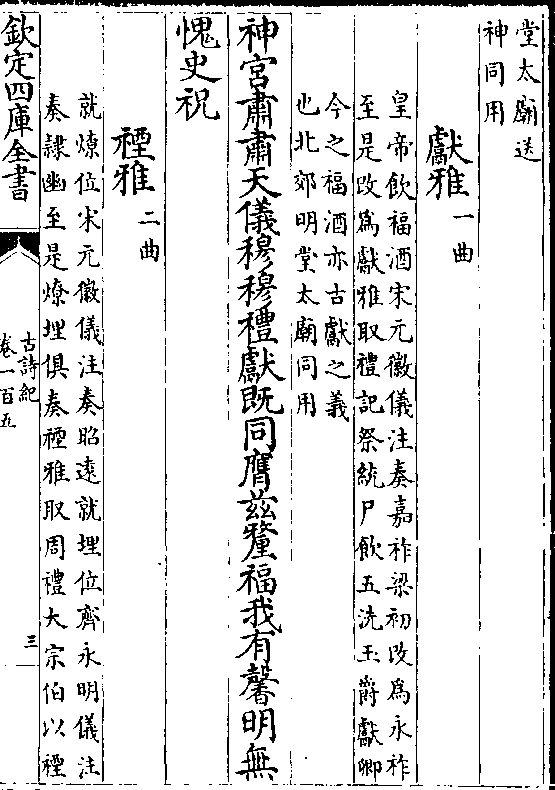 堂太廟送
神同用
獻雅一曲
皇帝飲福酒宋元徽儀注奏嘉祚梁初改爲永祚
至是改爲獻雅取禮記祭統尸飲五洗玉爵獻卿
今之福酒亦古獻之義
也北郊明堂太廟同用
神宮肅肅天儀穆穆禮獻既同膺兹釐福我有馨明無
愧史祝
禋雅二曲
就燎位宋元徽儀注奏昭遠就埋位齊永明儀注
奏隷幽至是燎埋俱奏禋雅取周禮大宗伯以禋
欽定四庫全書
古詩紀
卷一百五
三